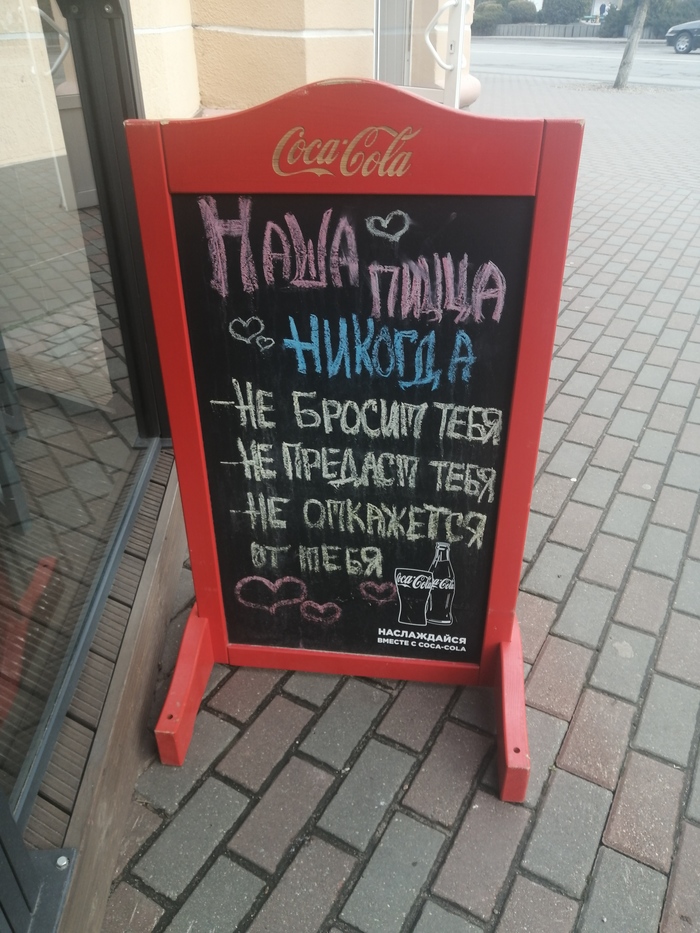 Coca-Cola
НАША
ПИЦЦА
НИКОГДА
-НЕ БРОСИТ ТЕБЯ
-НЕ ПРЕДАСТ ТЕБЯ
-НЕ ОТКАЖЕТСЯ
ОТ ТЕБЯ
Coca-Cola Coca-Cola
НАСЛАЖДАЙСЯ
ВМЕСТЕ С COCA-COLA